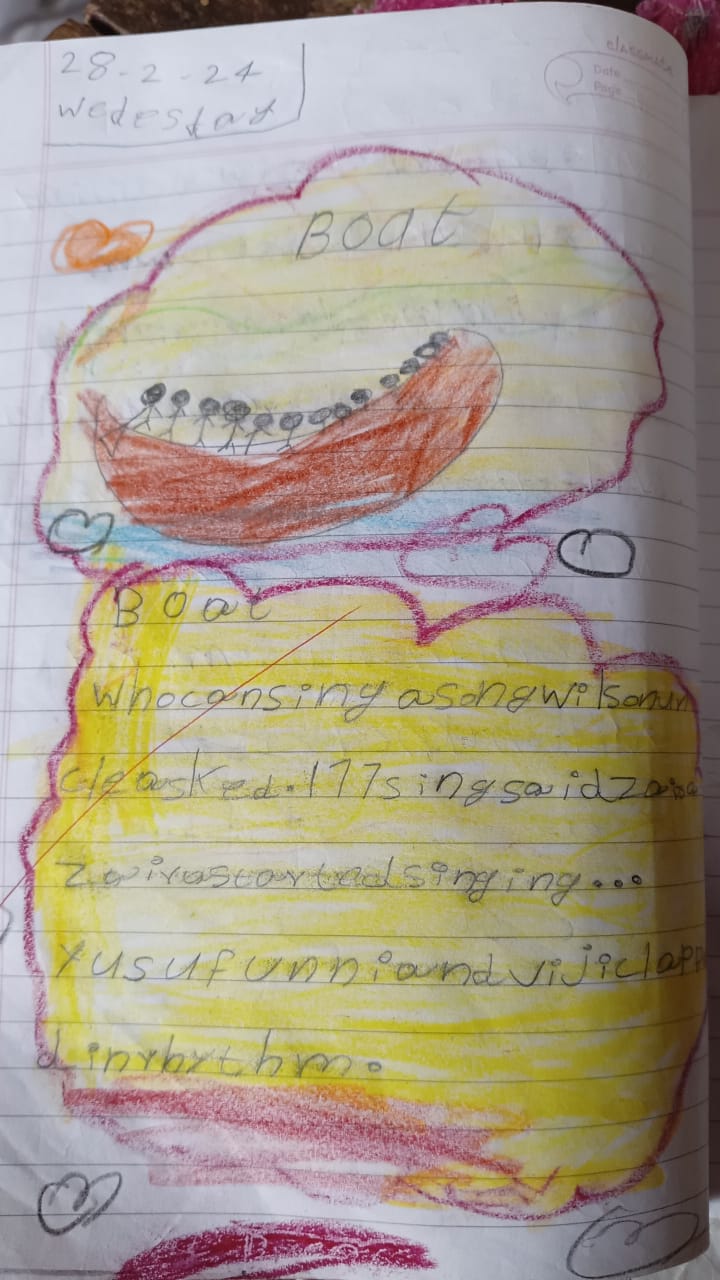 28-2-24
wedesday
classmate
Date
Page
Boat
Boat
whocansing asongwilsonun
cleasked.I77singsaidzaira
zairastartedsinging...
yusufunniandvijiclapp
dinrhythm.